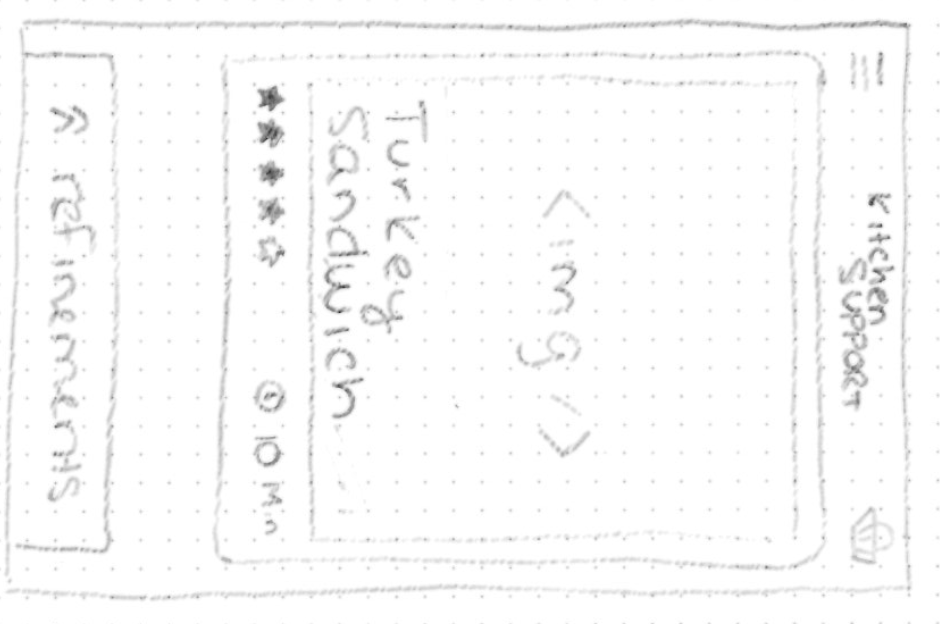 Kitchen
SUPPORT
<img/>
Turkey
Sandwich
10 Min
refinements